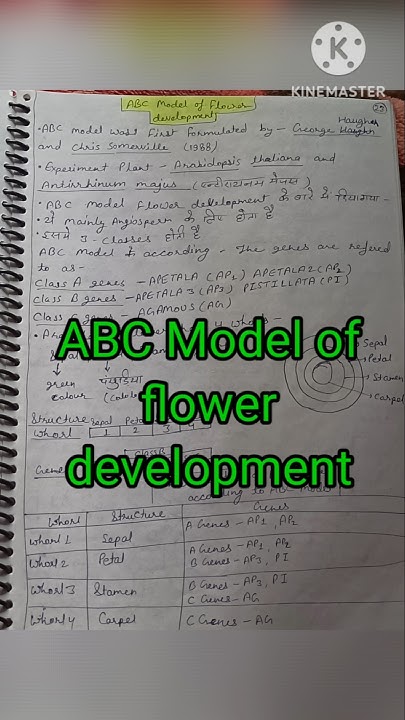 KINEMASTER
22
ABC Model of Flower
development
Haughn
• ABC model wast first formulated by - George Haughn
and Chris Somerville (1988)
• Experiment Plant - Arabidopsis thaliana and
Antirrhinum majus (एन्टीरायनम मेजस)
• ABC model flower development के बारे में दिया गया -
• ये mainly Angiosperm के लिए होता है
• इसमें 3-classes होती हैं
ABC Model के according - The genes are refered
to as -
Class A genes - APETALA (AP1) APETALA2 (AP2)
Class B genes - APETALA 3 (AP3) PISTILLATA (PI)
AGAMOUS (AG)
ABC Model of
flower
development
Sepal
Petal
Stamen
Carpel
green
colour
Structure Sepal
whorl 1 2 3
according to ABC Model
Whorl Structure Genes
Whorl 1 Sepal A Genes - AP1, AP2
Whorl 2 Petal A Genes - AP1, AP2
B Genes - AP3, PI
Whorl 3 Stamen B Genes - AP3, PI
C Genes - AG
Whorl 4 Carpel C Genes - AG